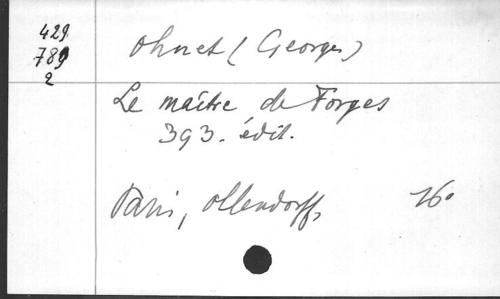 429
789
2
Ohnet (Georges)
Le maître de Forges
393. édit.
Paris, Ollendorff,
16°